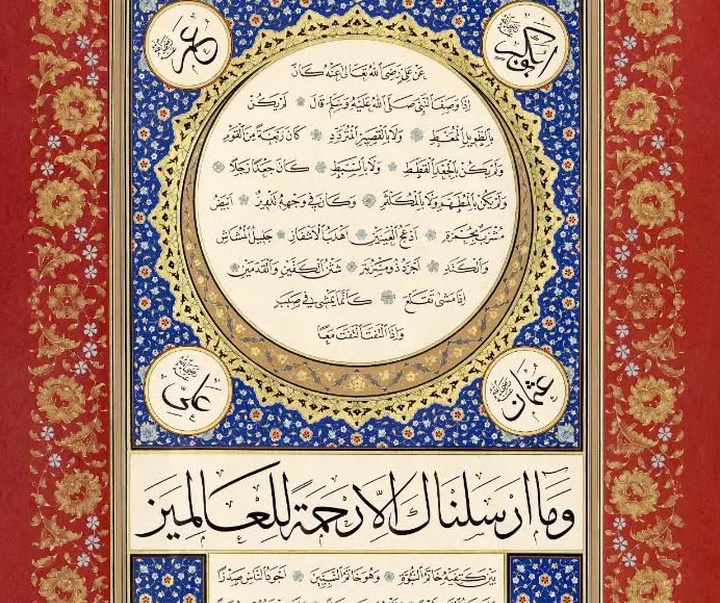 ابوبكر رضي الله عنه
عمر رضي الله عنه
عن علي رضي الله تعالى عنه كان
إذا وصف النبي صلى الله عليه وسلم قال لم يكن
بالطويل الممغط ولا بالقصير المتردد كان ربعة من القوم
ولم يكن بالجعد القطط ولا بالسبط كان جعدا رجلا
ولم يكن بالمطهم ولا بالمكلثم وكان في وجهه تدوير ابيض
مشرب بحمرة ادعج العينين اهدب الاشفار جليل المشاش
والكتد اجرد ذو مسربة شثن الكفين والقدمين
إذا مشى تقلع كانما يمشي في صبب
وإذا التفت التفت معا
عثمان رضي الله عنه
علي رضي الله عنه
وما ارسلناك الا رحمة للعالمين
بين كتفيه خاتم النبوة وهو خاتم النبيين اجود الناس صدرا